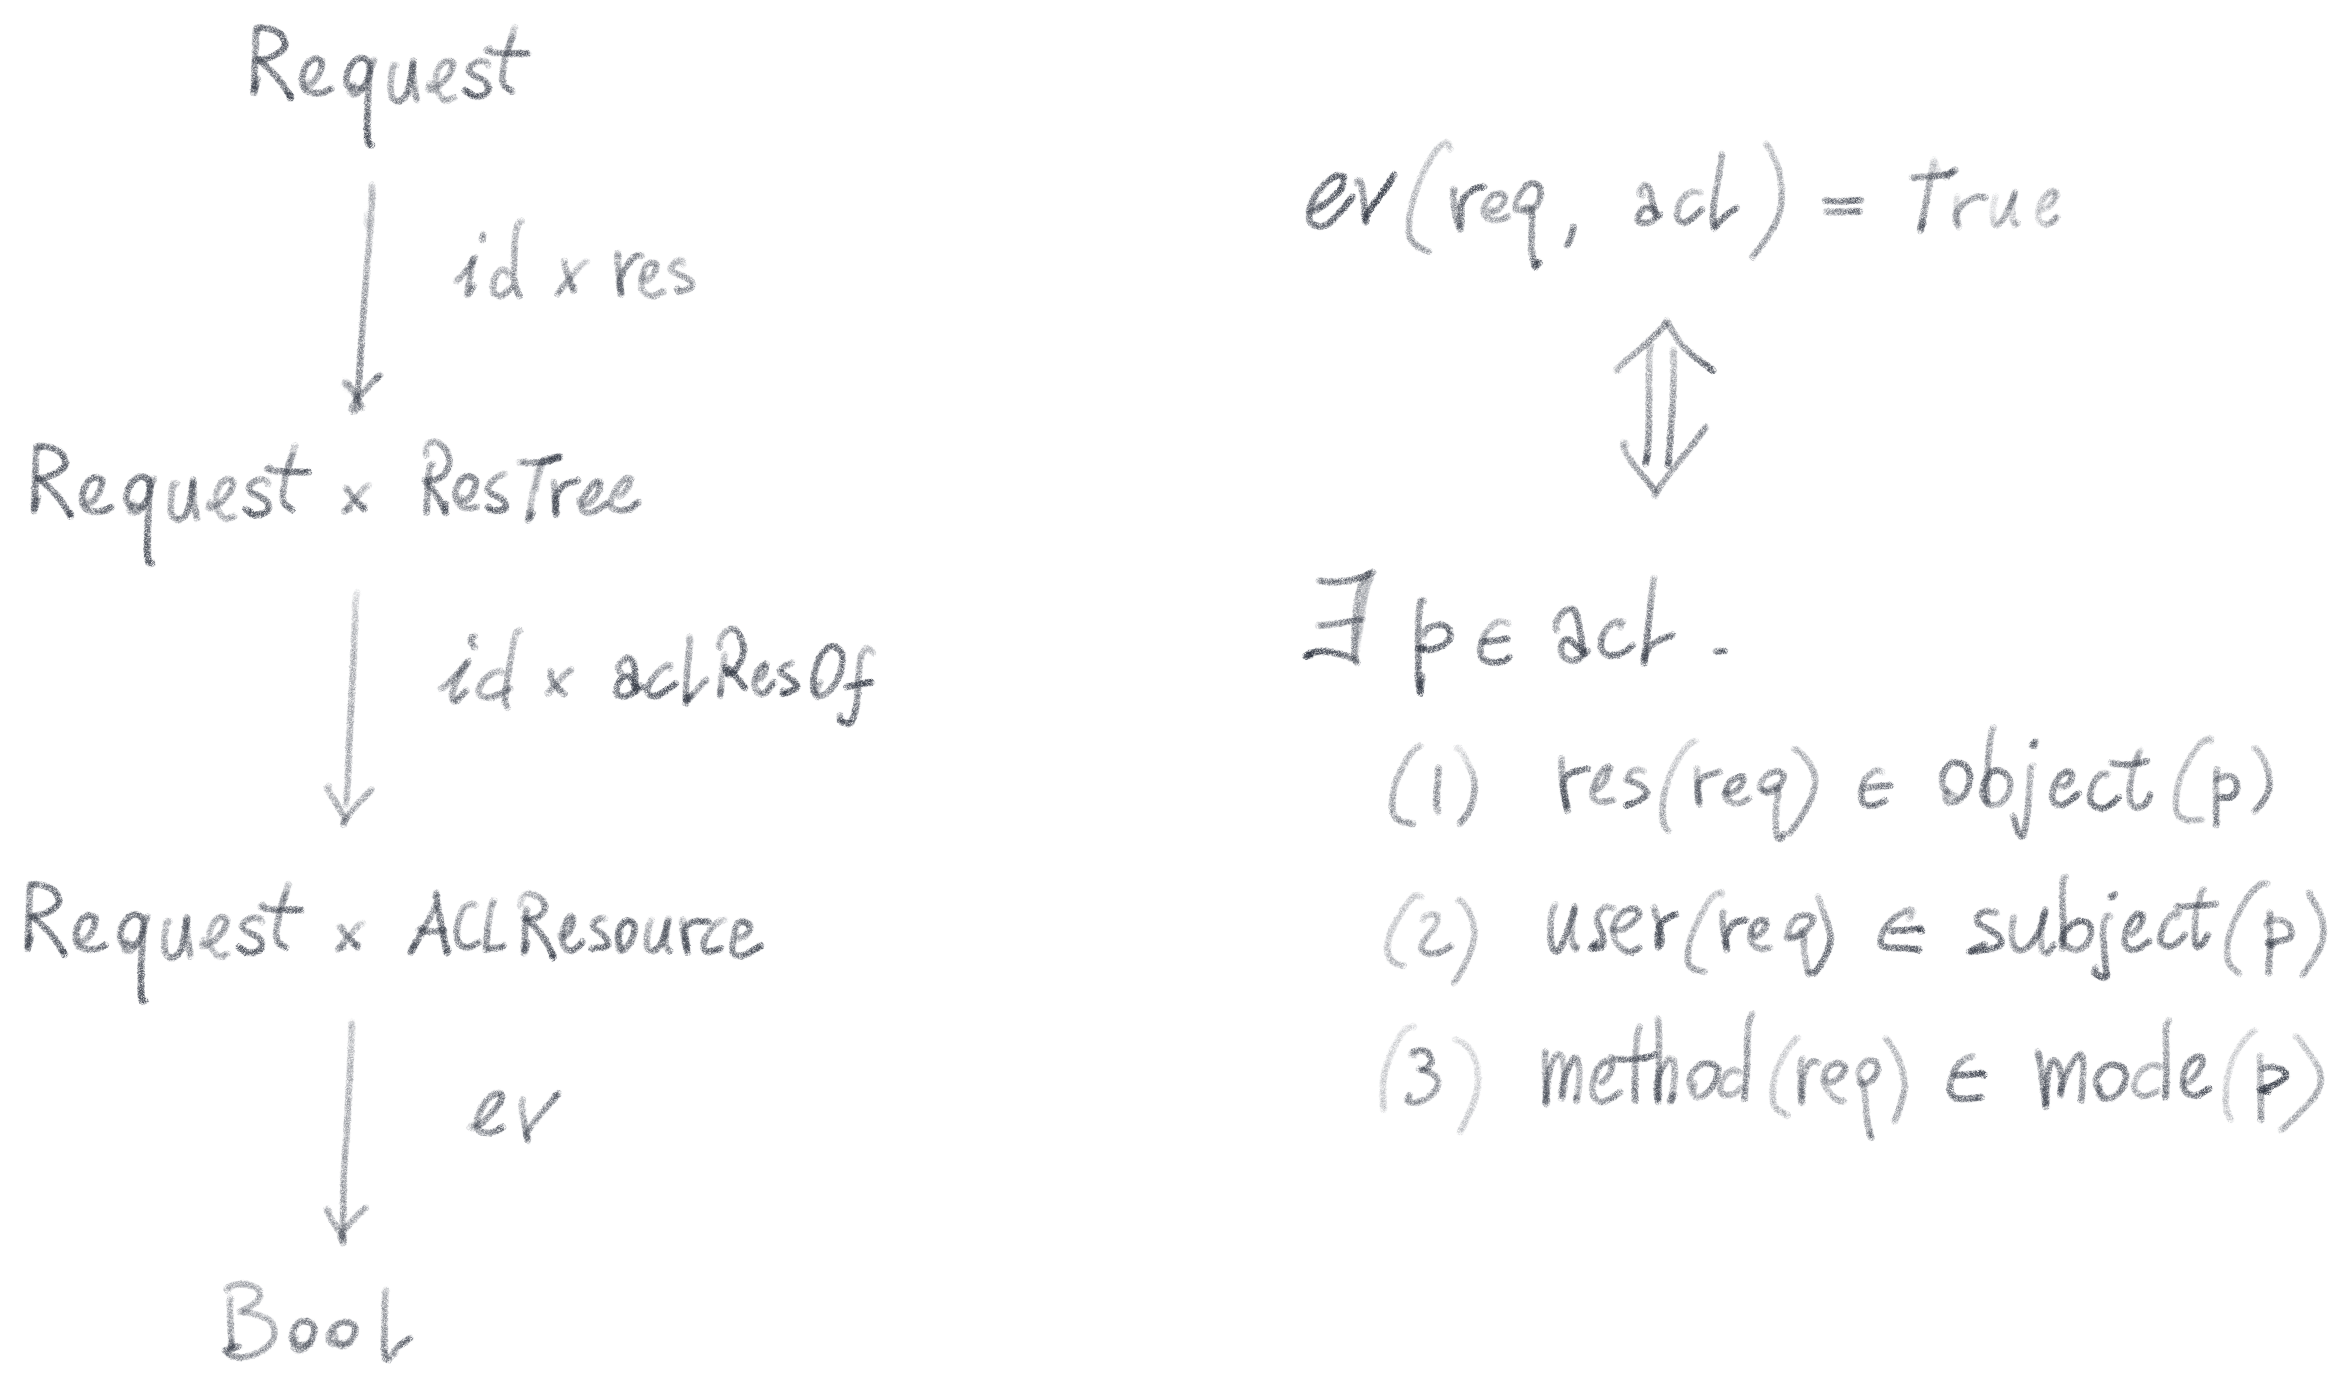 Request
id x res
Request x ResTree
id x aclResOf
Request x ACLResource
ev
Bool
ev(req, acl) = True
⇕
∃ p ∈ acl .
(1) res(req) ∈ object(p)
(2) user(req) ∈ subject(p)
(3) method(req) ∈ mode(p)